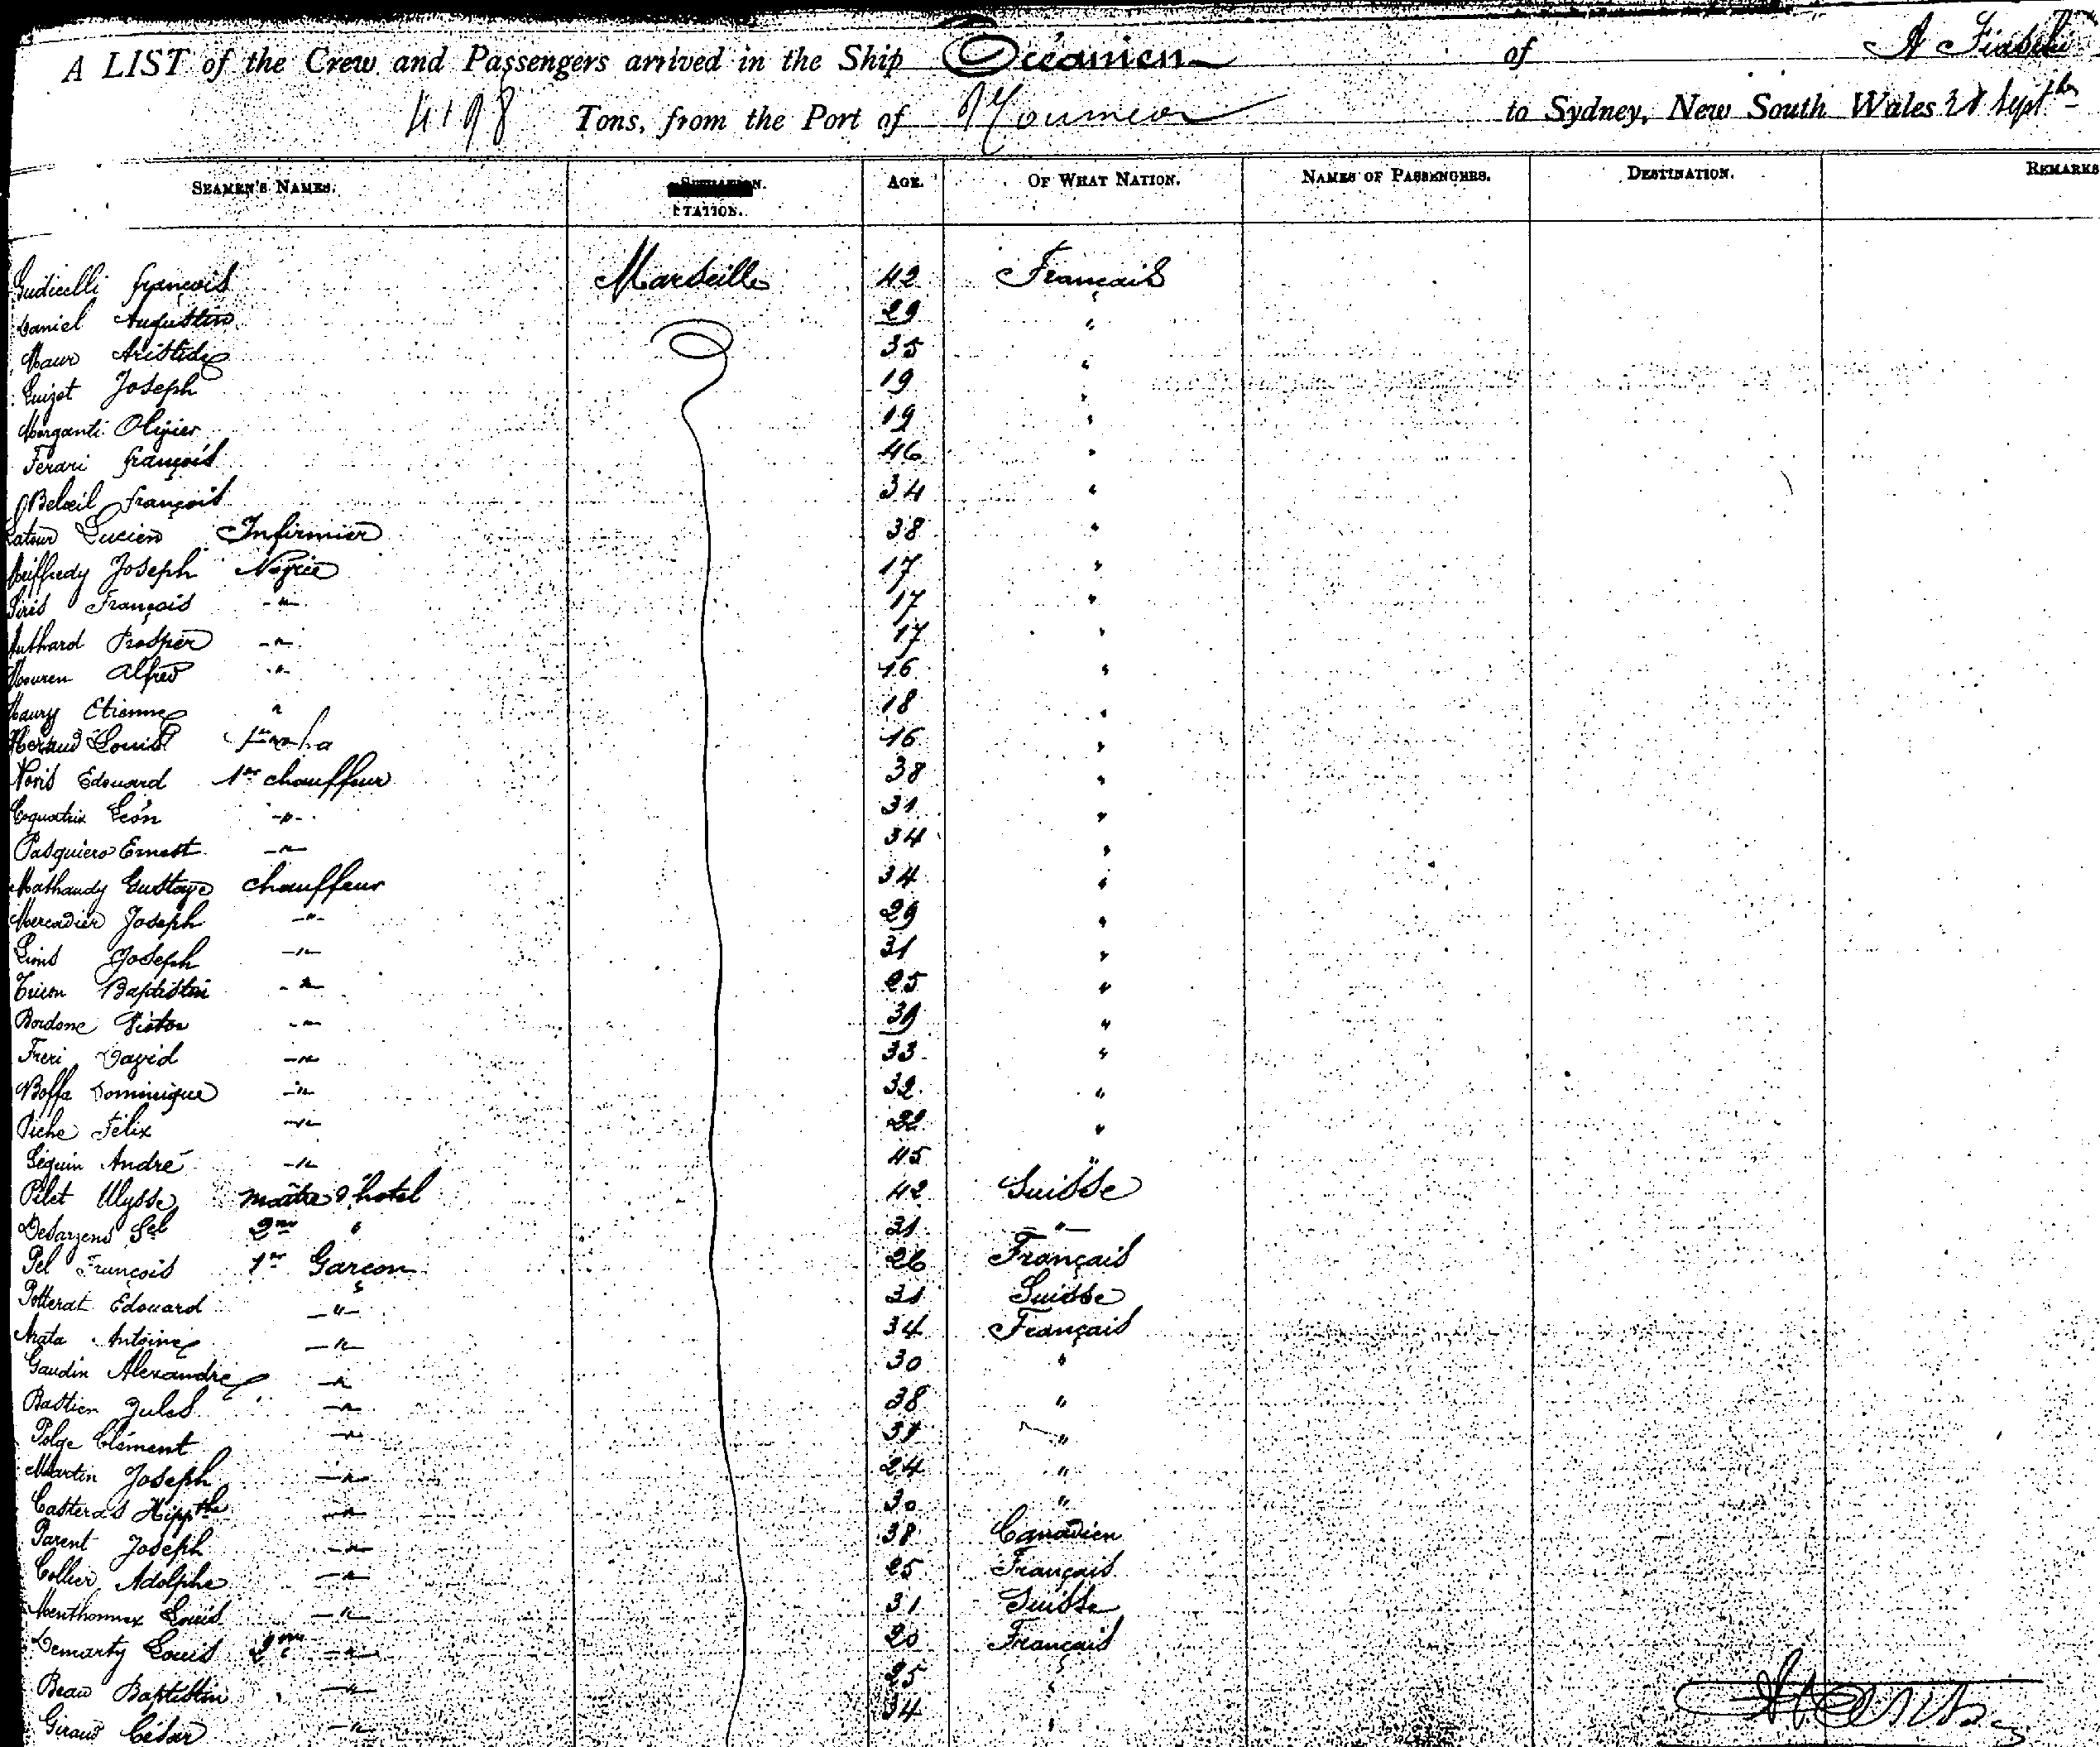 A LIST of the Crew and Passengers arrived in the Ship Océanien of A
4198 Tons, from the Port of Noumea to Sydney, New South Wales 28 Septbr
SEAMEN'S NAMES. STATION. AGE. OF WHAT NATION. NAMES OF PASSENGERS. DESTINATION. REMARKS
Gudicelli françois Marseille 42 Français
Daniel Augustin 29 "
Maur Aristide 35 "
Guizot Joseph 19 "
Morganti Olivier 19 "
Ferari françois 46 "
Belœil françois 34 "
Latour Lucien Infirmier 38 "
Joseph Novice 17 "
François -"- 17 "
Authard Prosper -"- 17 "
Mouren Alfred -"- 16 "
Maury Etienne " 18 "
Heraud Louis 16 "
Noris Edouard 1er chauffeur 38 "
Coquatrix Léon -"- 31 "
Pasquiero Ernest -"- 34 "
Mathaudy Gustave chauffeur 34 "
Mercadier Joseph -"- 29 "
Lions Joseph -"- 31 "
Tricon Baptistin -"- 25 "
Bordone Victor -"- 39 "
Freri David -"- 33 "
Boffa Dominique -"- 32 "
Piche Félix -"- 22 "
Séguin André -"- 45 "
Pilet Ulysse maître d'hotel 42 Suisse
Desarzens Sel 2me " 31 -"-
Pel François 1er Garçon 26 Français
Potterat Edouard -"- 31 Suisse
Arata Antoine -"- 34 Français
Gaudin Alexandre -"- 30 "
Bastien Jules -"- 38 "
Polge Clément -"- 37 "
Martin Joseph -"- 24 "
Casteras Hippthe -"- 30 "
Parent Joseph -"- 38 Canadien
Collier Adolphe -"- 25 Français
Menthonnex Louis -"- 31 Suisse
Demarty Louis 2me -"- 20 Français
Beau Baptistin -"- 25 "
Giraud César -"- 34 "